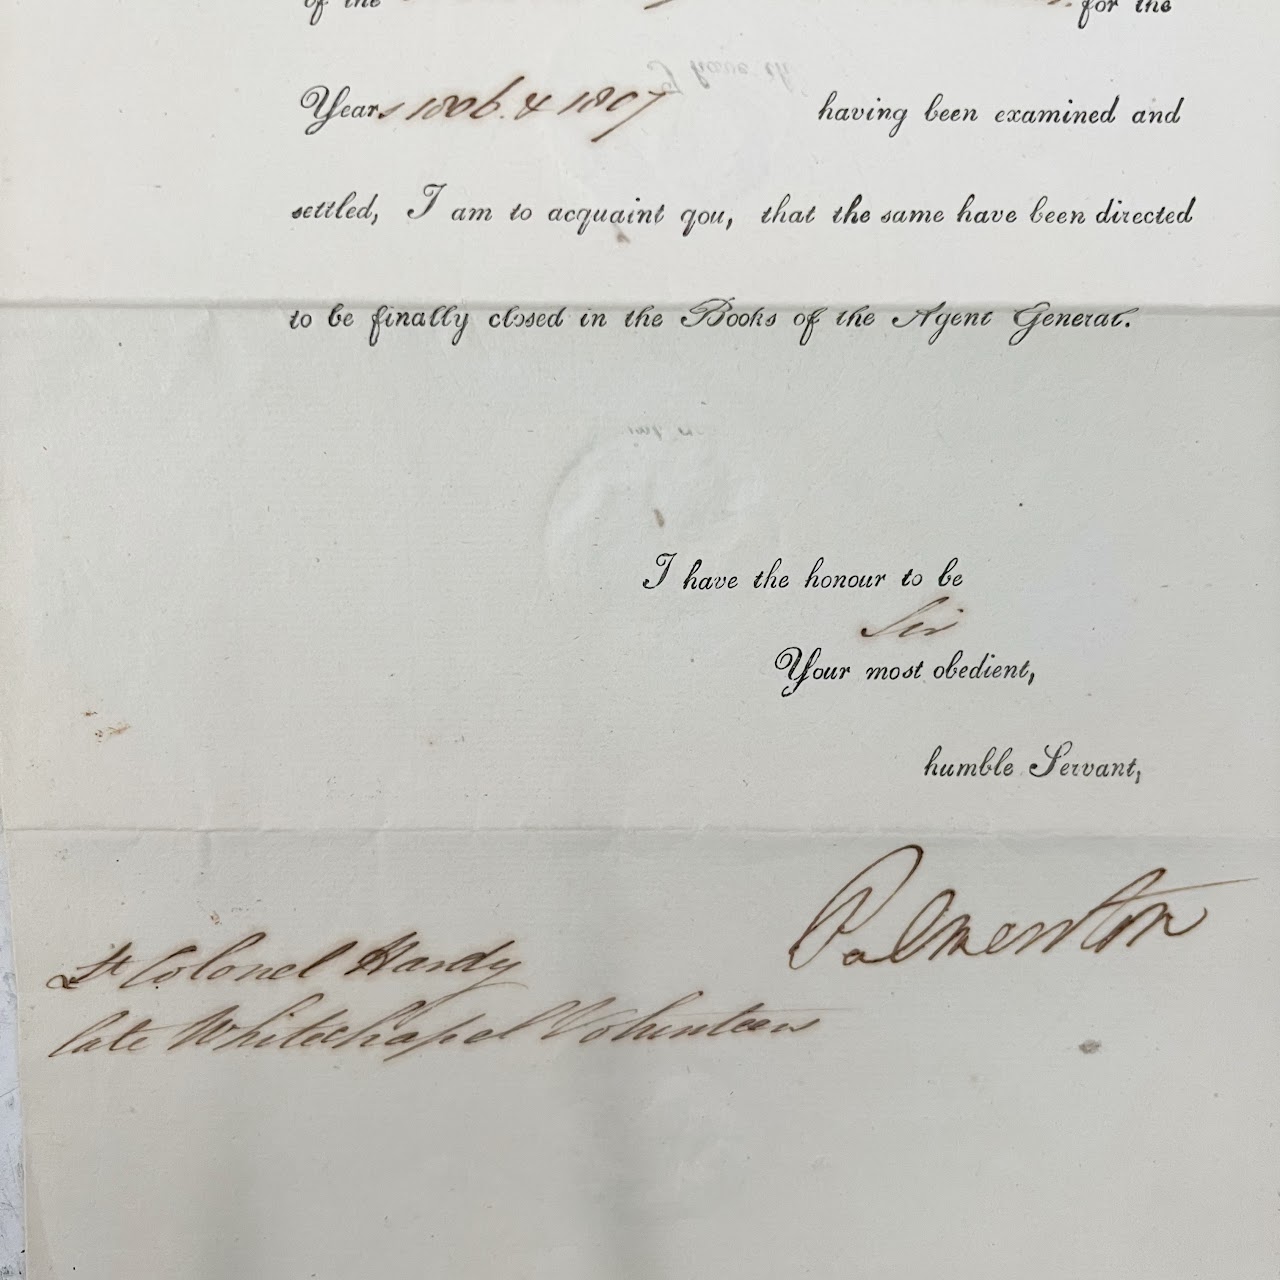 of the for the
Years 1806. & 1807 having been examined and
settled, I am to acquaint you, that the same have been directed
to be finally closed in the Books of the Agent General.
I have the honour to be
Sir
Your most obedient,
humble Servant,
Palmerston
Lt Colonel Hardy
late Whitechapel Volunteers